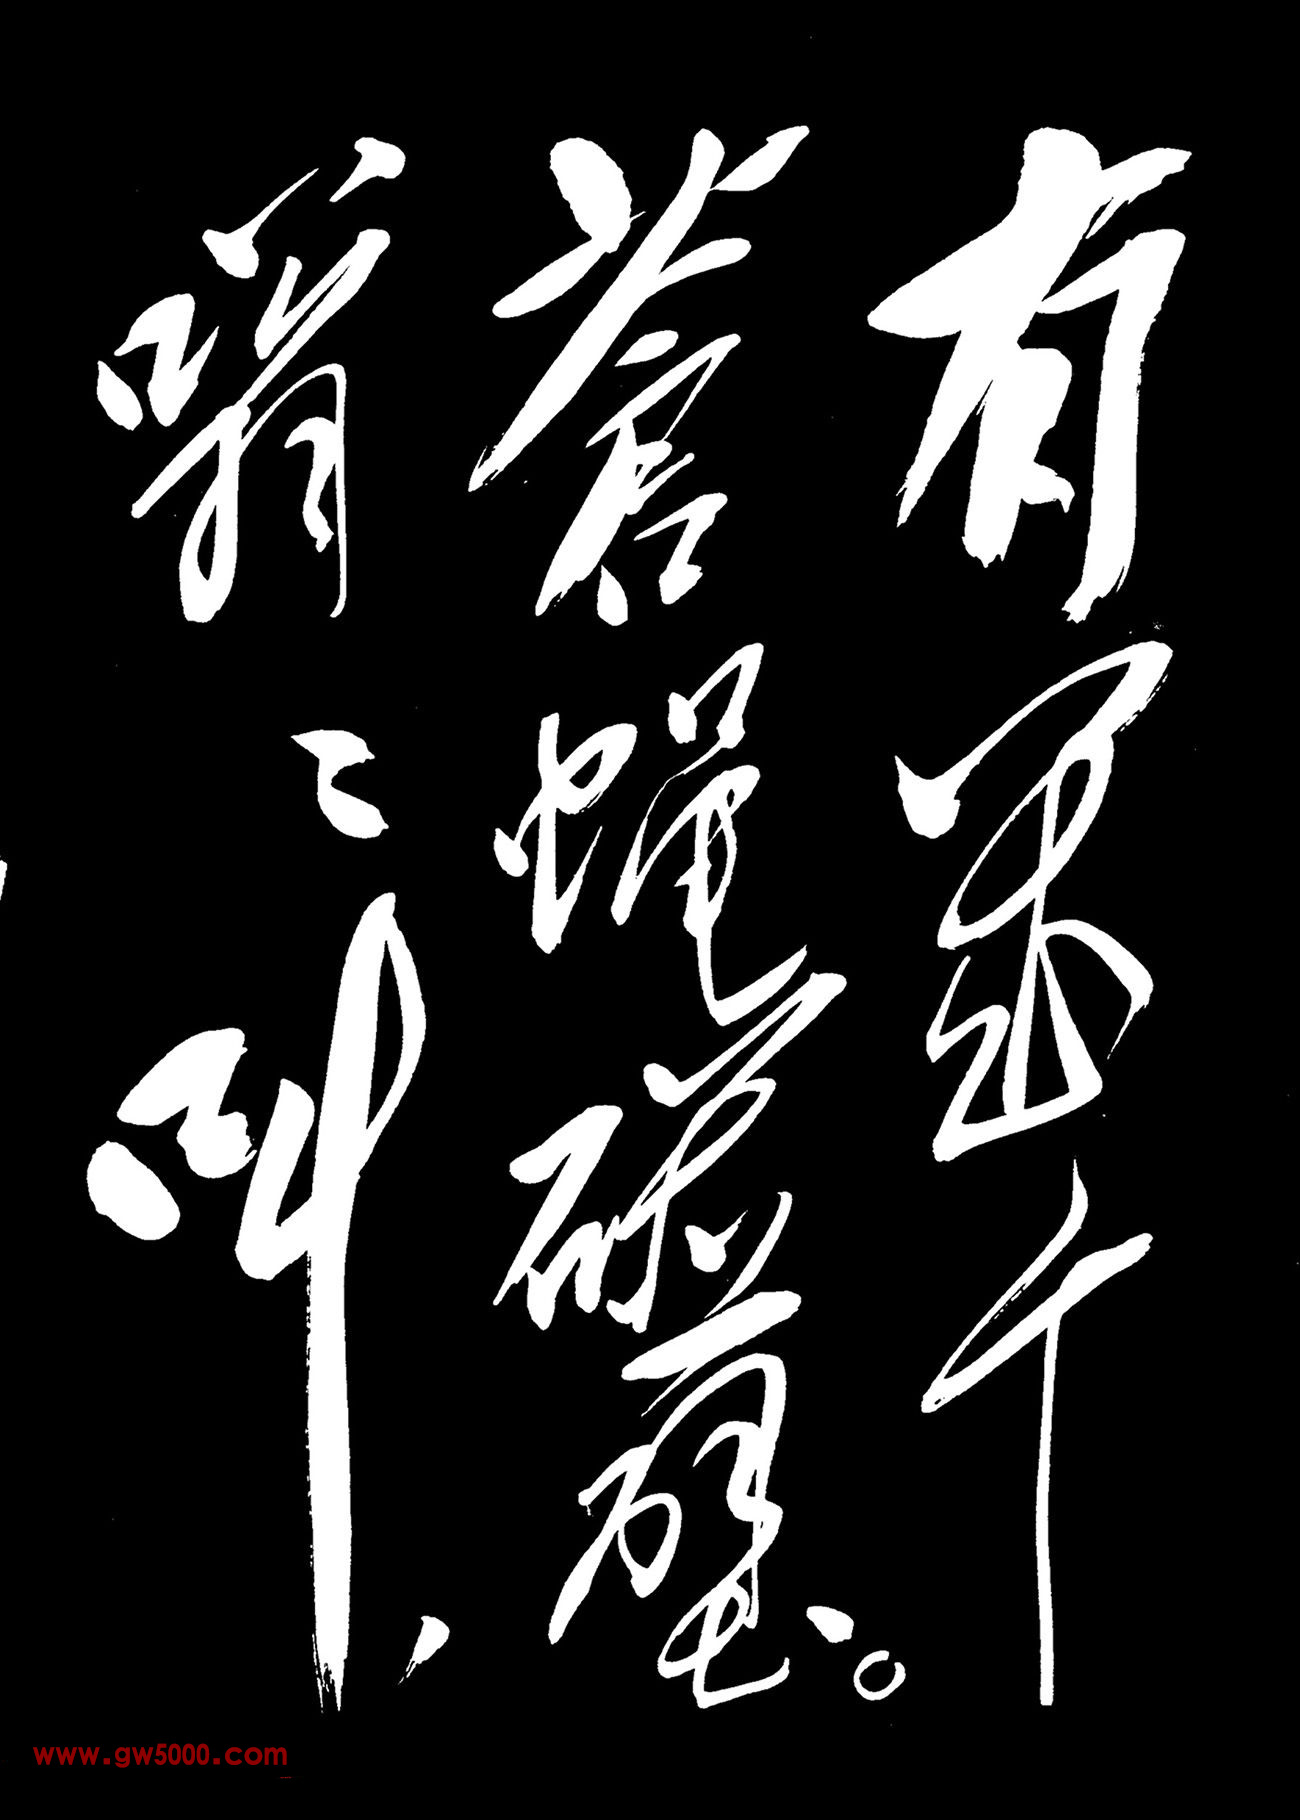 有幾个
蒼蝇碰壁。
嗡〻叫,
www.gw5000.com